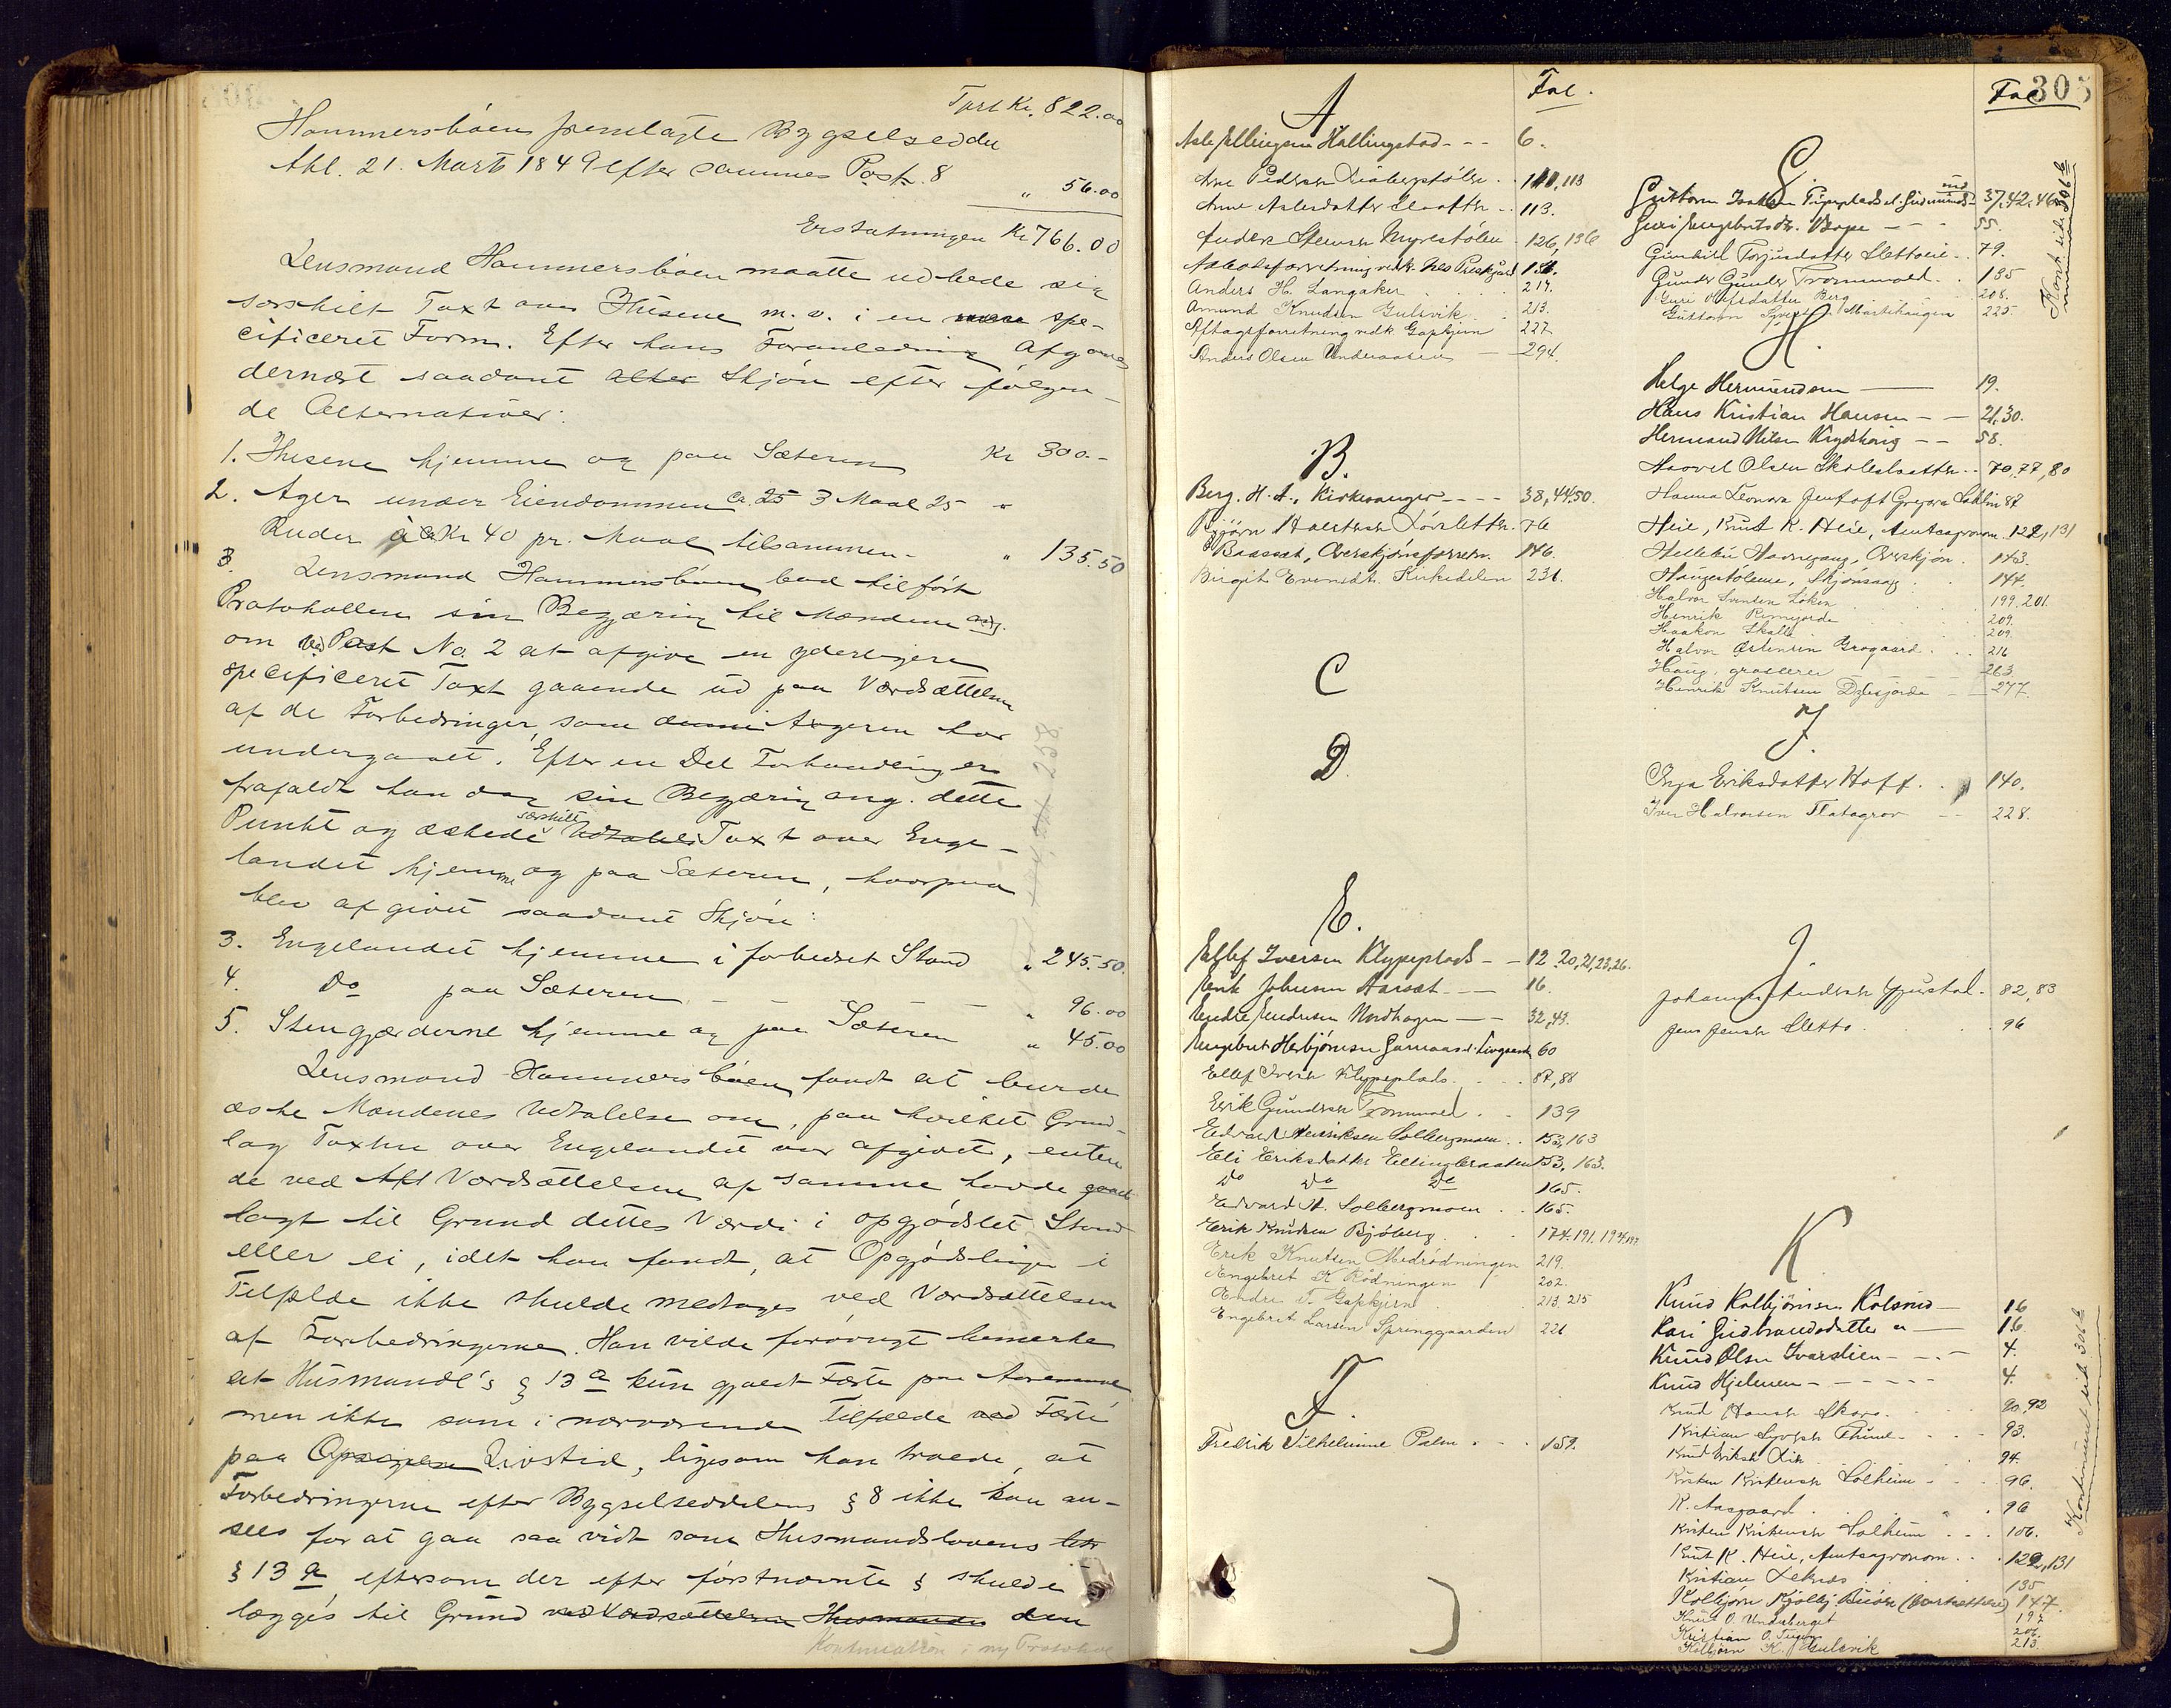 Tprt Kr. 822.00
Hammersbøens fremlagte Bygselseddel
Akl. 21. Marts 1849 efter sammes Post. 8
" 56.00
Erstatningen Kr 766.00
Lensmand Hammersbøen maatte udbede sig
særskilt Taxt over Husene m. v. i en spe-
cificeret Form. Efter hans Foranledning Afgaves
dernæst saadant Skjøn efter følgen-
de Alternativer:
1. Husene hjemme og paa Sæteren Kr 300.-
2. Ager under Eiendommen ca. 25 3 Maal 25
Ruder à Kr 40 pr. Maal tilsammen - " 135.50
3. Lensmand Hammersbøen bad tilført
Protokollen sin Begjæring til Mændene ang.
om ved Post No. 2 at afgive en yderligere
specificeret Taxt gaaende ud paa Værdsættelsen
af de Forbedringer, som Ageren har
undergaaet. Efter en Del Forhandlinger
frafaldt han dog sin Begjæring ang. dette
Punkt og æskede særskilt Taxt over Enge-
landet hjemme og paa Sæteren, hvorpaa
blev afgivet saadant Skjøn:
3. Engelandet hjemme i forbedret Stand " 245.50.
4. Do paa Sæteren - - - " 96.00
5. Stengjærderne hjemme og paa Sæteren " 45.00
Lensmand Hammersbøen fandt at burde
æske Mændenes Udtalelse om, paa hvilket Grund-
lag Taxten over Engelandet var afgivet, enten
de ved Værdsættelsen af samme havde
lagt til Grund dettes Værdi i opgjødslet Stand
eller ei, idet han fandt, at Opgjødslingen i
Tilfælde ikke skulde medtages ved Værdsættelsen
af Forbedringerne. Han vilde forøvrigt bemerke
at Husmandl's § 13 a kun gjaldt Fæste paa Aaremaal
men ikke som i nærværende Tilfælde ved Fæste
paa Livstid, ligesom han troede, at
Forbedringerne efter Bygselseddelens § 8 ikke kan an-
sees for at gaa saa vidt som Husmandslovens
§ 13 a eftersom der efter førstnævnte § skulde
lægges til Grund ved Værdsættelsen Husmandens den
Kontinuation i ny Protokol
305
A
Fol.
Asle Ellingsen Hallingstad - - - 6.
Arne Pedersen 110, 113
Anne Aslesdatter 113.
Anders Steensen Myrestølen 126, 136
Anders H. Langaker 217.
Amund Knudsen Gulsvik. 213.
Aftagtsforretning vedk. Gapkjern 227
Anders Olsen Underaasen - 294.
B.
Berg. H. A., Kirkesanger - - - - 38, 44, 50.
Bjørn 76
Baasaat, Overskjønsforretn. 146.
Birgit Evensdt. Kirkedelen 231.
C
D.
E.
Ellef Iversen Klypeplads - - 12, 20, 21, 23, 26.
Erik Johnsen Aarsat - - - 16.
Endre Endresen Nordhagen - - 32, 43.
Engebret Herbjørnsen 60
Ellef Iversen Klypeplads. 87, 88
Erik Gundersen Trommald. 139
Edvard Henriksen Solbergmoen. 153, 163
Eli Eriksdatter Ellingbraaten 153, 163.
Do Do Do 165.
Edvard H. Solbergmoen 165.
Erik Knudsen Bjøberg. 174. 191. 194.
Erik Knutsen Medrødningen 219.
Engebret K Rødningen 202.
Endre T. Gapkjern 213. 215
Engebret Larsen Springgaarden 221
F.
Fredrik Vilhelmine Palm. 159.
Fol.
G.
Guttorm 37, 42, 46
Guri Engebretsdt. 55.
Gunhild Torjusdatter Slettoeie. 79.
Gunder Gunder Trommald. 135
Guri Olafsdatter Berg 208.
Guttorm Martinhaugen 225.
Kont. side 306 b
H.
Helge Hermundsen - 19.
Hans Kristian Hansen - - 21, 30.
Hermand Nilsen - - 58.
Haavel Olsen Skolesletten. 70, 77, 80
Hanna Leonora 87
Heie, Knut K. Heie, Amtsagronom. 122, 131
Hellebu Havnegang, Overskjøn. 143.
Haugestølene, Skjønssag 144.
Halvor Svensen Løken 199, 201.
Henrik Rimegarde 209.
Haakon Skalle 209.
Halvor Østensen Brogaard. 216
Haug, graaeren 263.
Henrik Knutsen 277.
I
Inga Eriksdatter Hoff. 140.
Iver Halvorsen Flatagrov - 228.
J.
Johannes Andersen 82, 83
Jens Jensen Sletto. 96
K
Knud Kolbjørnsen Kolsrud - 16
Kari Gudbrandsdatter " - 16.
Knud Olsen Ivarslien - - - 4.
Knud Hjelmen - - - - - 4.
Knud Hansen Skaro. 90, 92
Kristian Syvertsen Thune. 93.
Knud Eriksen Lie 94.
Kristen Kristensen Solheim - 96.
K. Aasgaard. 96
Kristen Kristensen Solheim 106.
Knut K. Heie, Amtsagronom. 122, 131
Kristian Leknes 135
Kolbjørn Kjølby 147.
Knut O. Underberget 197
Kristian O. 206.
Kolbjørn K. Gulsvik 213.
Kontinueret side 306 b